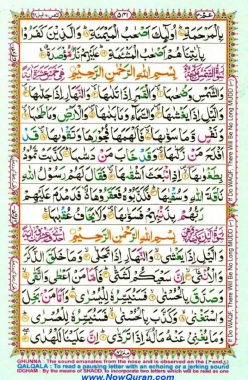 بِالْمَرْحَمَةِ اُولٰٓئِكَ اَصْحٰبُ الْمَيْمَنَةِ وَالَّذِيْنَ كَفَرُوْا
بِاٰيٰتِنَا هُمْ اَصْحٰبُ الْمَشْئَمَةِ عَلَيْهِمْ نَارٌ مُّؤْصَدَةٌ
بِسْمِ اللّٰهِ الرَّحْمٰنِ الرَّحِيْمِ
وَالشَّمْسِ وَضُحٰىهَا وَالْقَمَرِ اِذَا تَلٰىهَا وَالنَّهَارِ اِذَا جَلّٰىهَا
وَالَّيْلِ اِذَا يَغْشٰىهَا وَالسَّمَآءِ وَمَا بَنٰىهَا وَالْاَرْضِ وَمَا طَحٰىهَا
وَنَفْسٍ وَّمَا سَوّٰىهَا فَاَلْهَمَهَا فُجُوْرَهَا وَتَقْوٰىهَا قَدْ
اَفْلَحَ مَنْ زَكّٰىهَا وَقَدْ خَابَ مَنْ دَسّٰىهَا كَذَّبَتْ ثَمُوْدُ
بِطَغْوٰىهَا اِذِ انْبَعَثَ اَشْقٰىهَا فَقَالَ لَهُمْ رَسُوْلُ اللّٰهِ
نَاقَةَ اللّٰهِ وَسُقْيٰهَا فَكَذَّبُوْهُ فَعَقَرُوْهَا فَدَمْدَمَ عَلَيْهِمْ
رَبُّهُمْ بِذَنْۢبِهِمْ فَسَوّٰىهَا وَلَا يَخَافُ عُقْبٰهَا
بِسْمِ اللّٰهِ الرَّحْمٰنِ الرَّحِيْمِ
وَالَّيْلِ اِذَا يَغْشٰى وَالنَّهَارِ اِذَا تَجَلّٰى وَمَا خَلَقَ الذَّكَرَ
وَالْاُنْثٰٓى اِنَّ سَعْيَكُمْ لَشَتّٰى فَاَمَّا مَنْ اَعْطٰى وَاتَّقٰى
وَصَدَّقَ بِالْحُسْنٰى فَسَنُيَسِّرُهٗ لِلْيُسْرٰى وَاَمَّا مَنْۢ بَخِلَ
وَاسْتَغْنٰى وَكَذَّبَ بِالْحُسْنٰى فَسَنُيَسِّرُهٗ لِلْعُسْرٰى وَمَا
يُغْنِيْ عَنْهُ مَالُهٗٓ اِذَا تَرَدّٰى اِنَّ عَلَيْنَا لَلْهُدٰى
GHUNNA : The sound emanates from the nose and is observed on the
QALQALA : To read a pausing letter with an echoing or a jerking sound
IDGHAM : By the means of SHADD. To incorporate two letters which will be read as one
www.NowQuran.com
If Do WAQF, There Will Be No Long MUDD